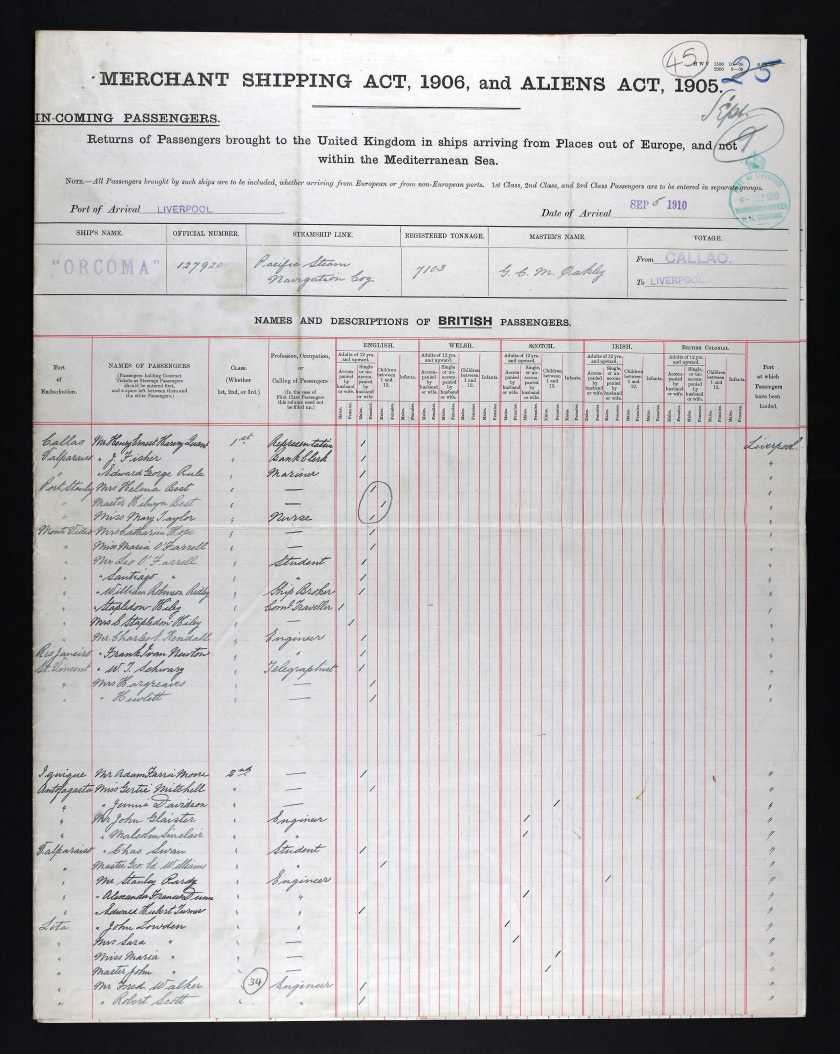 45
25
MERCHANT SHIPPING ACT, 1906, and ALIENS ACT, 1905.
Sept
9
IN-COMING PASSENGERS.
Returns of Passengers brought to the United Kingdom in ships arriving from Places out of Europe, and not
within the Mediterranean Sea.
NOTE.—All Passengers brought by such ships are to be included, whether arriving from European or from non-European ports. 1st Class, 2nd Class, and 3rd Class Passengers are to be entered in separate groups.
Port of Arrival LIVERPOOL
Date of Arrival SEP 5 1910
SHIP'S NAME. OFFICIAL NUMBER. STEAMSHIP LINE. REGISTERED TONNAGE. MASTER'S NAME. VOYAGE.
"ORCOMA" 127920 Pacific Steam Navigation Coy 7103 G. C. M. Oakly From CALLAO.
To LIVERPOOL
NAMES AND DESCRIPTIONS OF BRITISH PASSENGERS.
Port of Embarkation. NAMES OF PASSENGERS Class. (Whether 1st, 2nd, or 3rd.) Profession, Occupation, or Calling of Passengers ENGLISH. WELSH. SCOTCH. IRISH. British Colonial. Port at which Passengers have been landed.
Adults of 12 yrs. and upward. Children between 1 and 12. Infants.
Accompanied by husband or wife. Single or unaccompanied by husband or wife.
Males. Females.
Callao Mr Henry Ernest Henry 1st Representative / Liverpool
Valparaiso " J Fisher " Bank Clerk / "
" " Edward George Rule " Mariner / "
Port Stanley Mrs Helena Best " — / "
" Master Best " — / "
" Miss Mary Taylor " Nurse / "
Monte Video Mrs Catharine Hope " — / "
" Miss Maria O'Farrell " — / "
" Mr Leo O'Farrell " Student / "
" " Santiago " " " / "
" " William Robinson Ridley " Ship Broker / "
" " Stapledon Wiley " Coml Traveller / "
" Mrs E Stapledon Wiley " — / "
" Mr Charles Kendall " Engineer / "
Rio Janeiro " Frank Ivan Newton " " / "
St Vincent " W. T. Schwarz " Telegraphist / "
" Mrs Hargreaves " — / "
" " Hewlett " — / "
Iquique Mr Adam Farrie Moore 2nd — / "
Antofagasta Miss Gertie Mitchell " — / "
" " Jennie Davidson " — / "
" Mr John Glaister " Engineer / "
" " Malcolm Sinclair " " / "
Valparaiso " Chas Swan " Student / "
" Master Geo. Ed Williams " " / "
" Mr Stanley " Engineer / "
" " Alexander Francis Dunn " " / "
" " Edward Hubert Turner " " / "
Lota " John Lowden " " / "
" Mrs Sara " " — / "
" Miss Maria " " — / "
" Master John " " — / "
" Mr Fred Walker 34 Engineer / "
" " Robert Scott " " / "